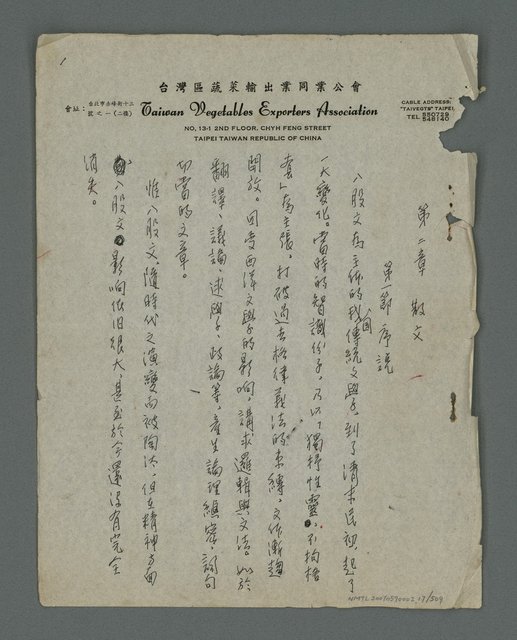 1
台灣區蔬菜輸出業同業公會
會址：台北市赤峰街十三號之一（二樓）
Taiwan Vegetables Exporters Association
NO. 13-1 2ND FLOOR, CHYH FENG STREET
TAIPEI TAIWAN REPUBLIC OF CHINA
CABLE ADDRESS:
"TAIVEGTS" TAIPEI
TEL
第二章　散文
第一節　序說
八股文為主体的我國傳統文學，到了清末民初，起了
一大變化。當時的智識份子，乃以「獨抒性靈，不拘格
套」為主張，打破過去格律義法的束縛，文作漸趨
開放。因受西洋文學的影响，講求邏輯與文法。如於
翻譯、議論、述學、政論等，產生論理縝密，詞句
切當的文章。
惟八股文，隨時代之演變而被陶汰，但在精神方面
八股文影响依旧很大，甚至於今還沒有完全
消失。
NMTL20070590002 17/509